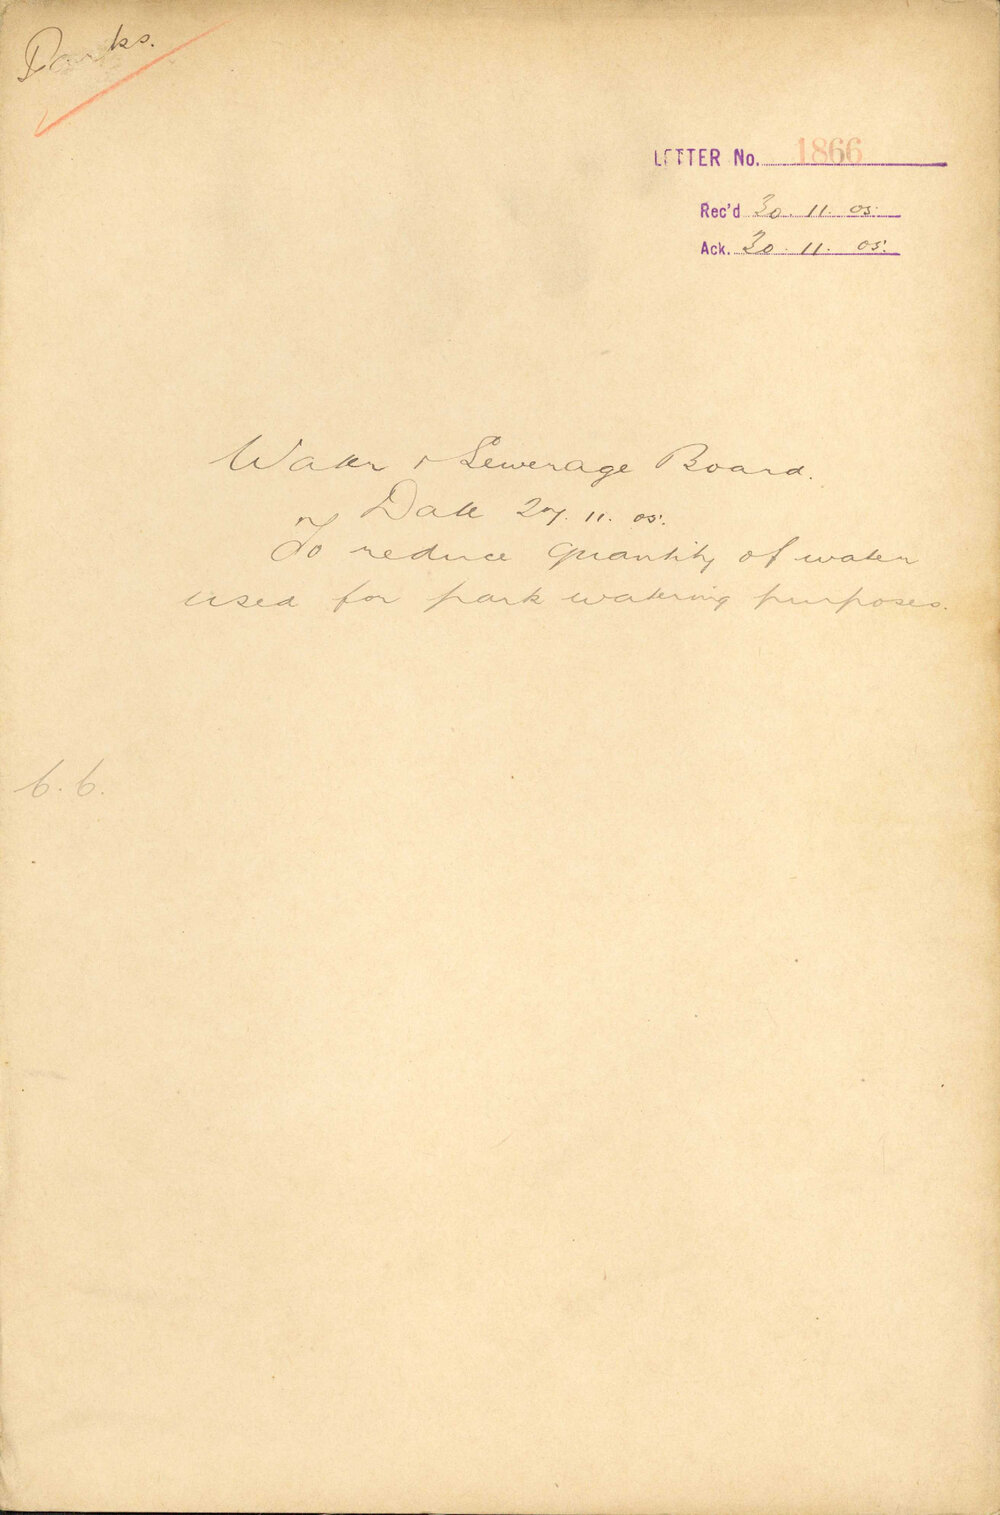 Parks.
LETTER No. 1866
Rec'd 30. 11. 05.
Ack. 30. 11. 05.
Water & Sewerage Board.
Date 27. 11. 05.
To reduce quantity of water
used for park watering purposes.
6. 6.